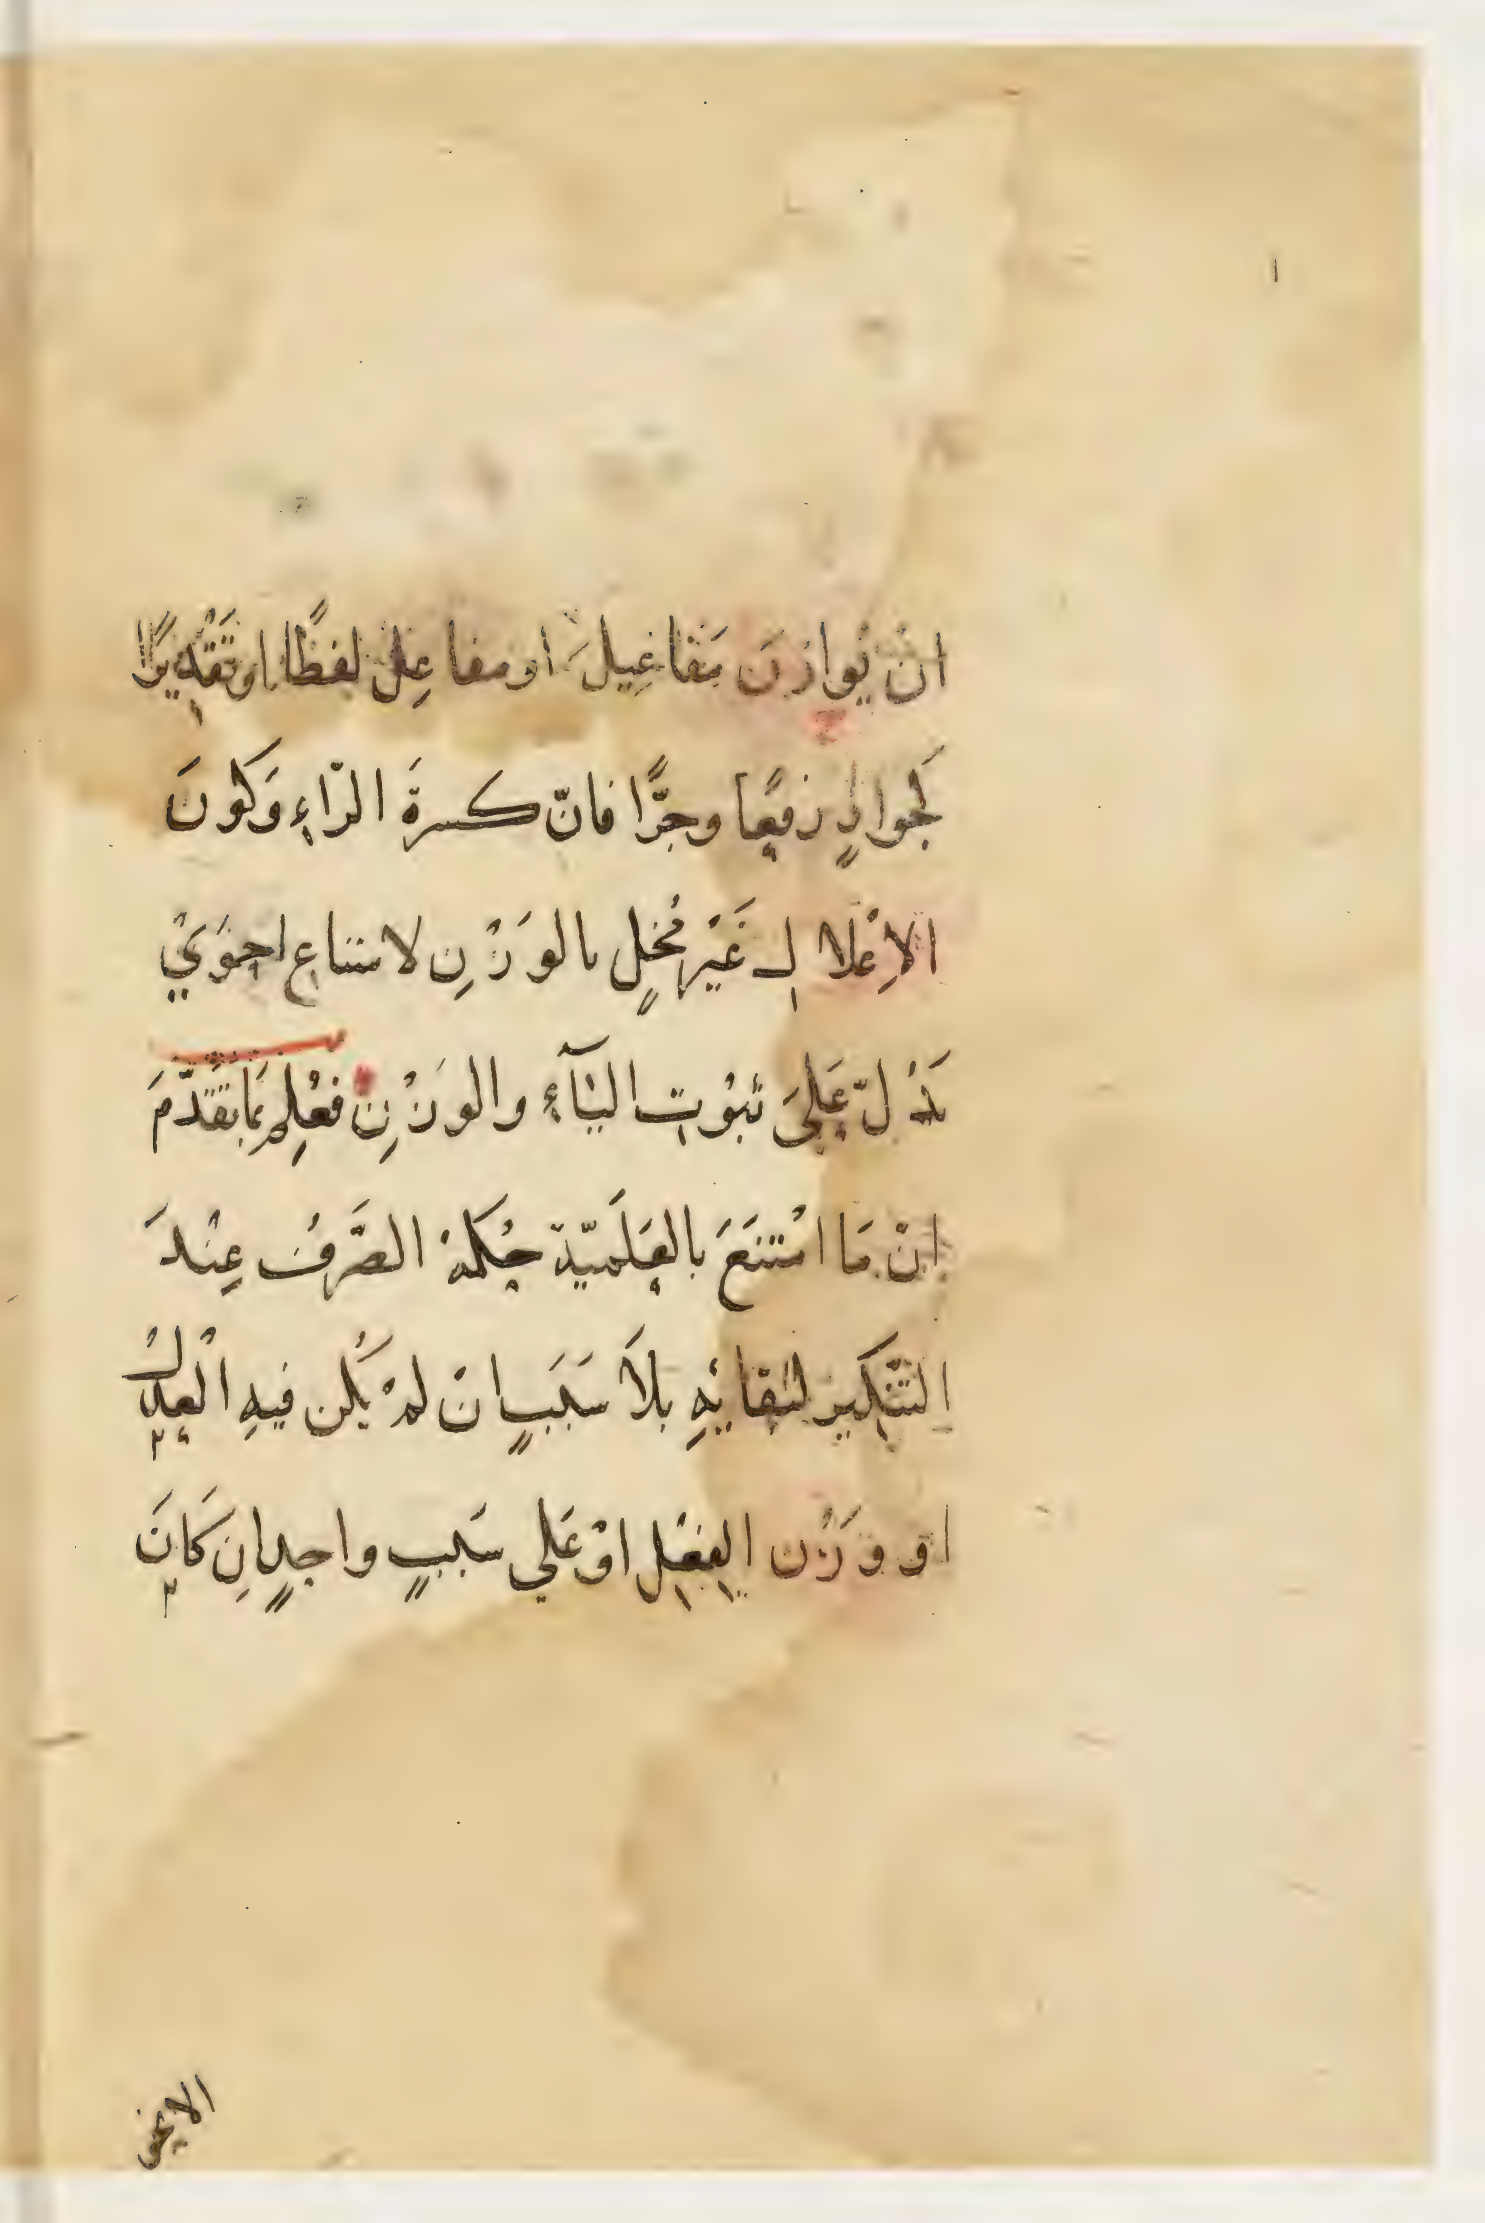 ان يُوازنَ مَفاعِيلَ او مفاعِل لفظًا او تَقْدِيرًا
كَجوارٍ رفعًا وجرًّا فانّ كسرةَ الرّاءِ وَكونَ
الاِعْلالِ غَيْر مُخلٍ بالوَزْنِ لامتناع احموَيْ
يَدُلّ عَلىَ ثبوُتِ اليَآءِ والوَزْنِ فعُلِم بمَا تقَدّمَ
انْ مَا امْتنَعَ بالعَلَميّة حُكمهُ الصَّرفُ عِنْدَ
التّنكير لبقائِهِ بلاَ سَبَبٍ انْ لمْ يَكُن فيهِ الْعِدْلُ
او وَزْن الفِعْلِ اوْ عَلي سَبَبٍ واحِدٍ انِ كَانَ